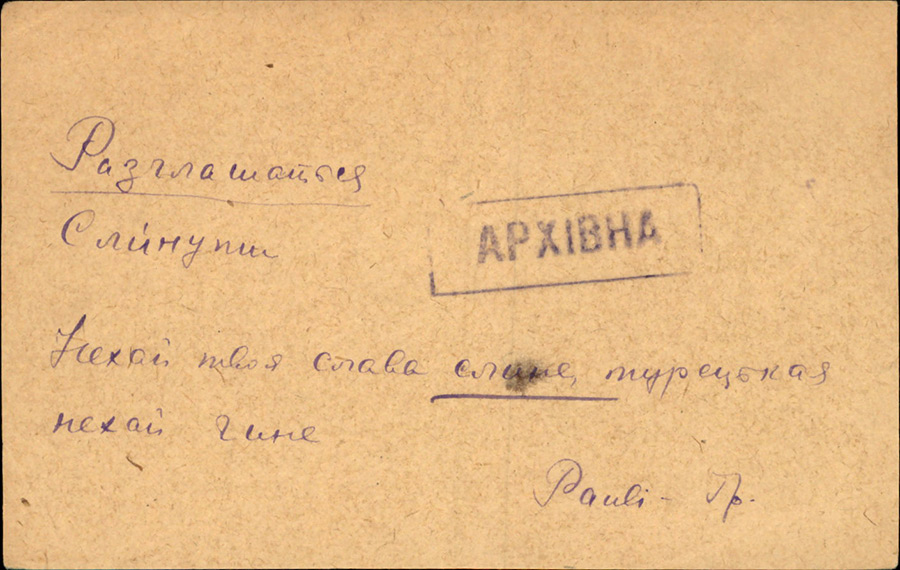 Разглашаться
Слинути
АРХІВНА
Нехай твоя слава слине, турецькая
нехай гине
Pauli - Гр.